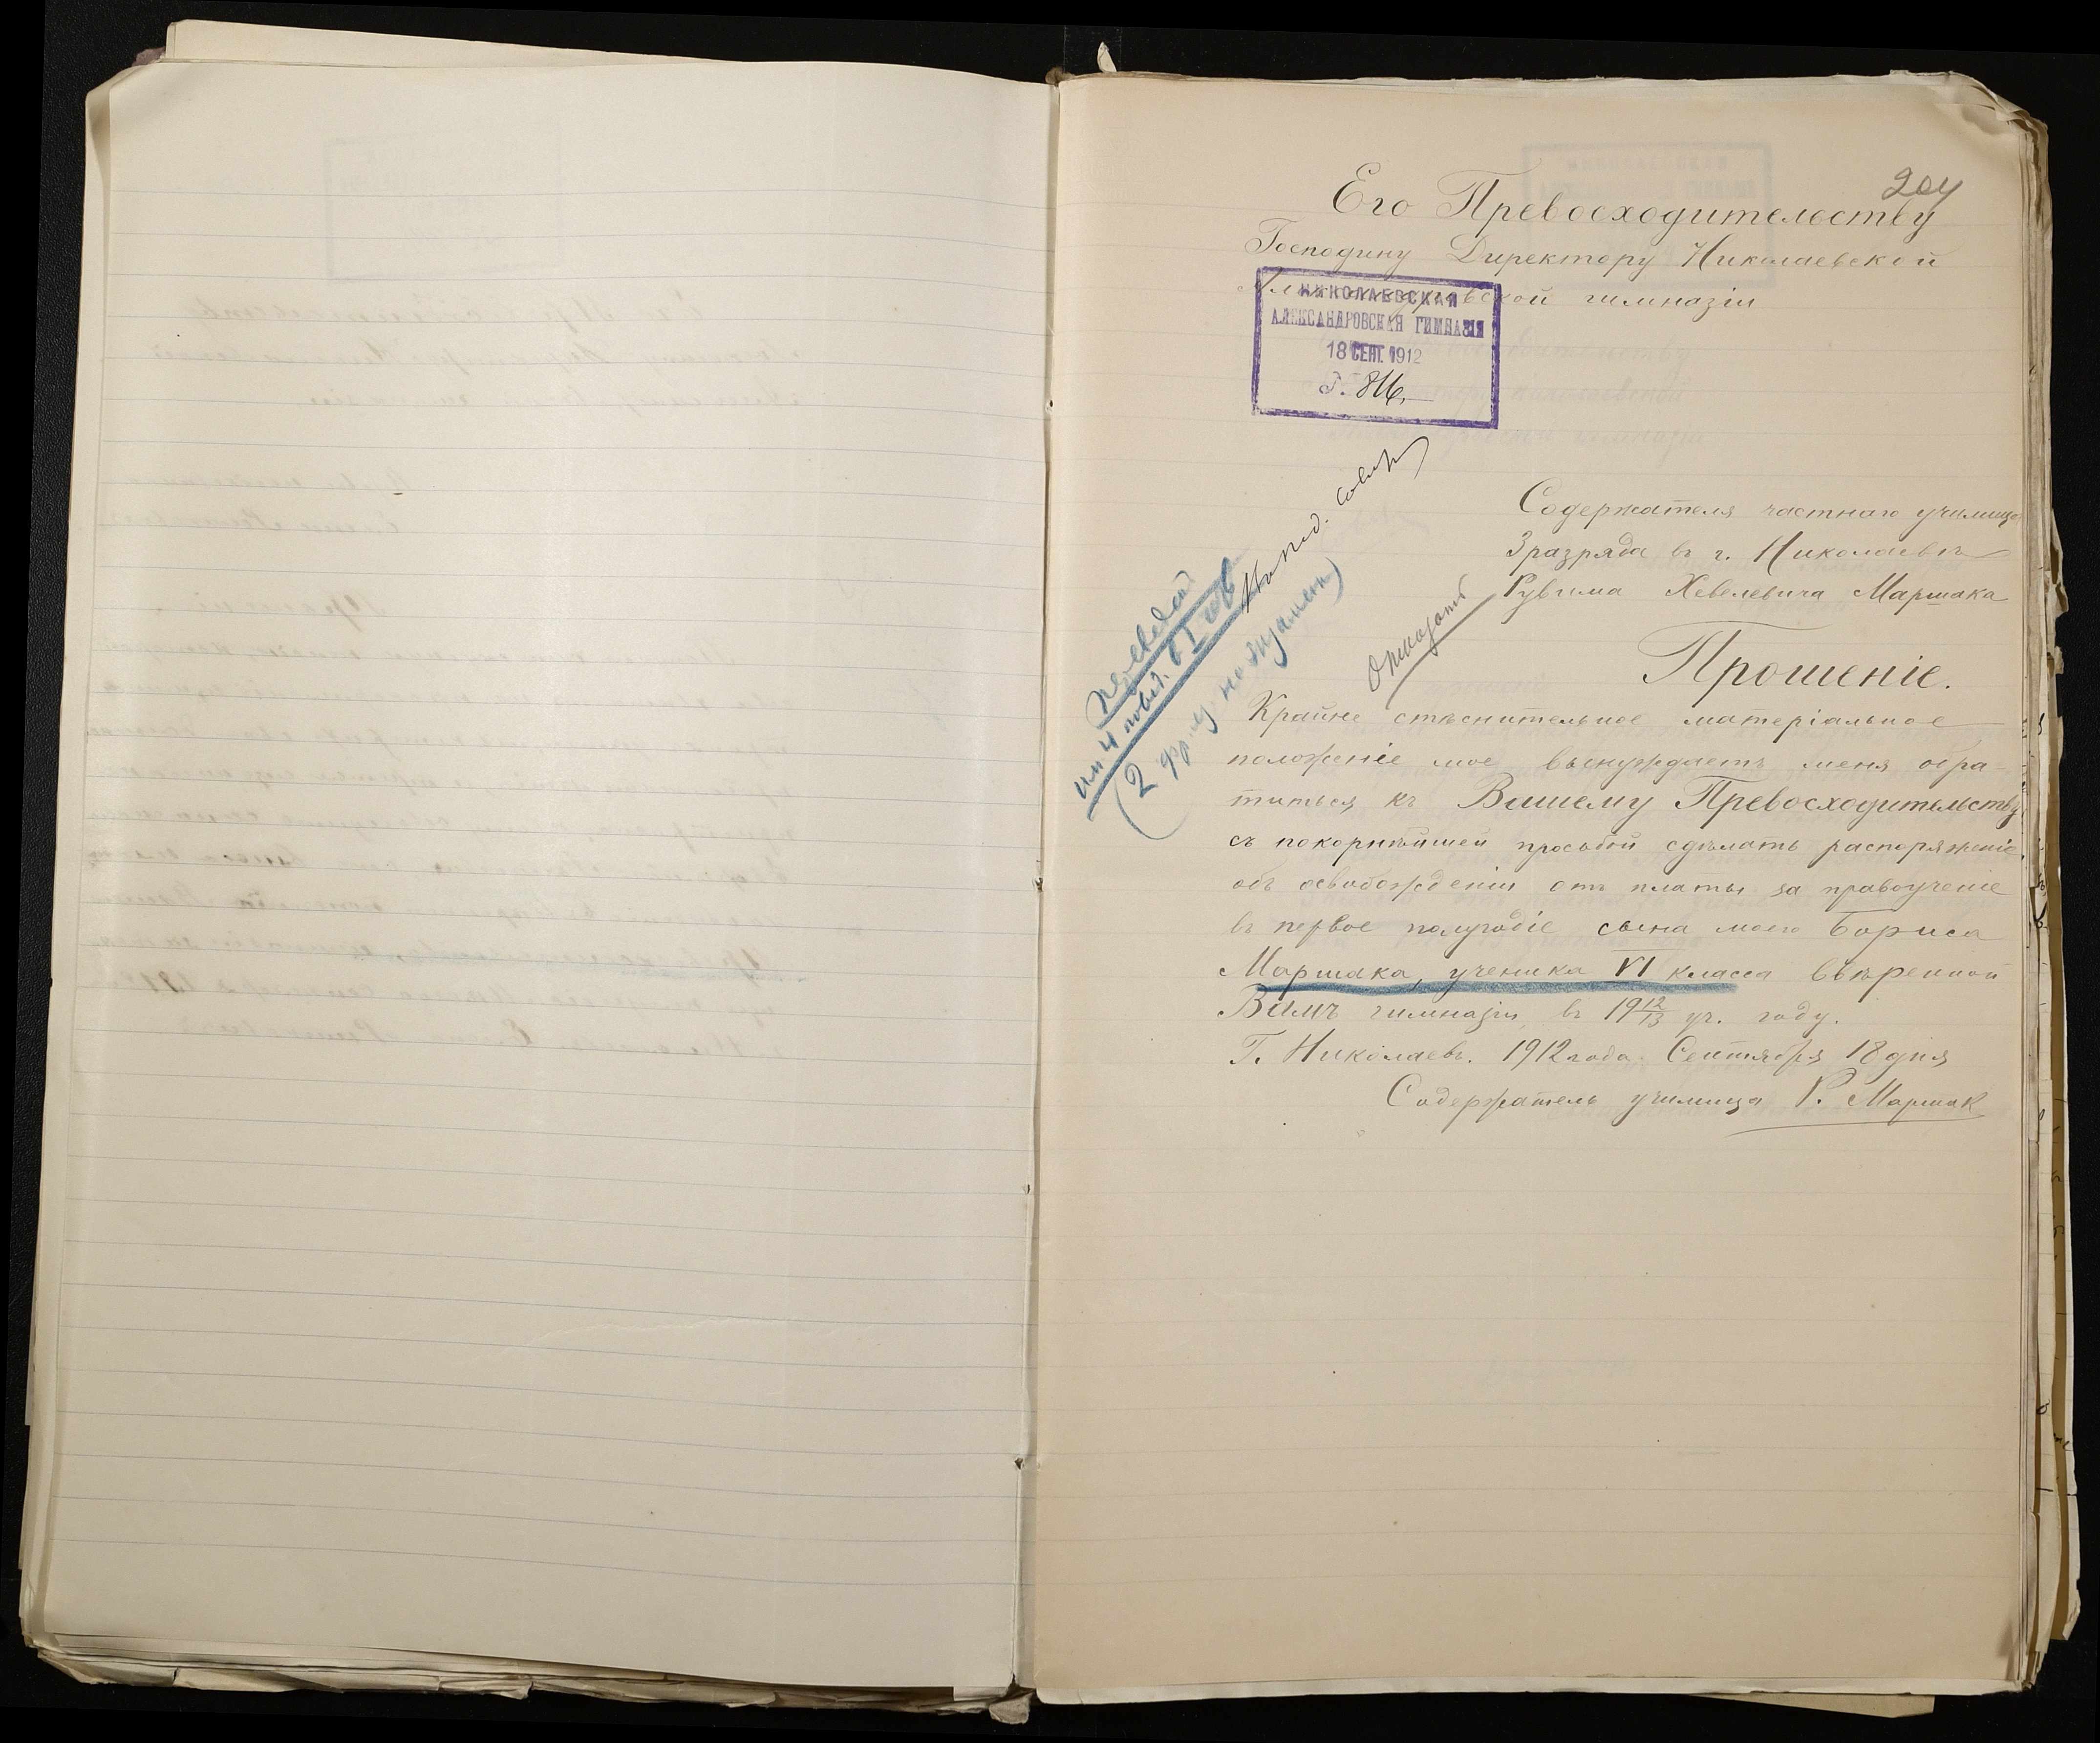 204
Его Превосходительству
Господину Директору Николаевской
Александровской гимназіи
НИКОЛАЕВСКАЯ
АЛЕКСАНДРОВСКАЯ ГИМНАЗІЯ
18 СЕНТ. 1912
На пед. совѣтъ
Отказать
(2 фр. яз. на экзамен)
Содержателя частнаго училища
3 разряда въ г. Николаевѣ
Рувима Хевелевича Маршака
Прошеніе.
Крайне стѣснительное матеріальное
положеніе мое вынуждаетъ меня обра-
титься къ Вашему Превосходительству
съ покорнѣйшей просьбой сдѣлать распоряженіе
объ освобожденіи отъ платы за правоученіе
въ первое полугодіе сына моего Бориса
Маршака, ученика VI класса ввѣренной
Вамъ гимназіи, въ 19 12/13 уч. году.
Г. Николаевъ. 1912 года. Сентября 18 дня
Содержатель училища Р. Маршак